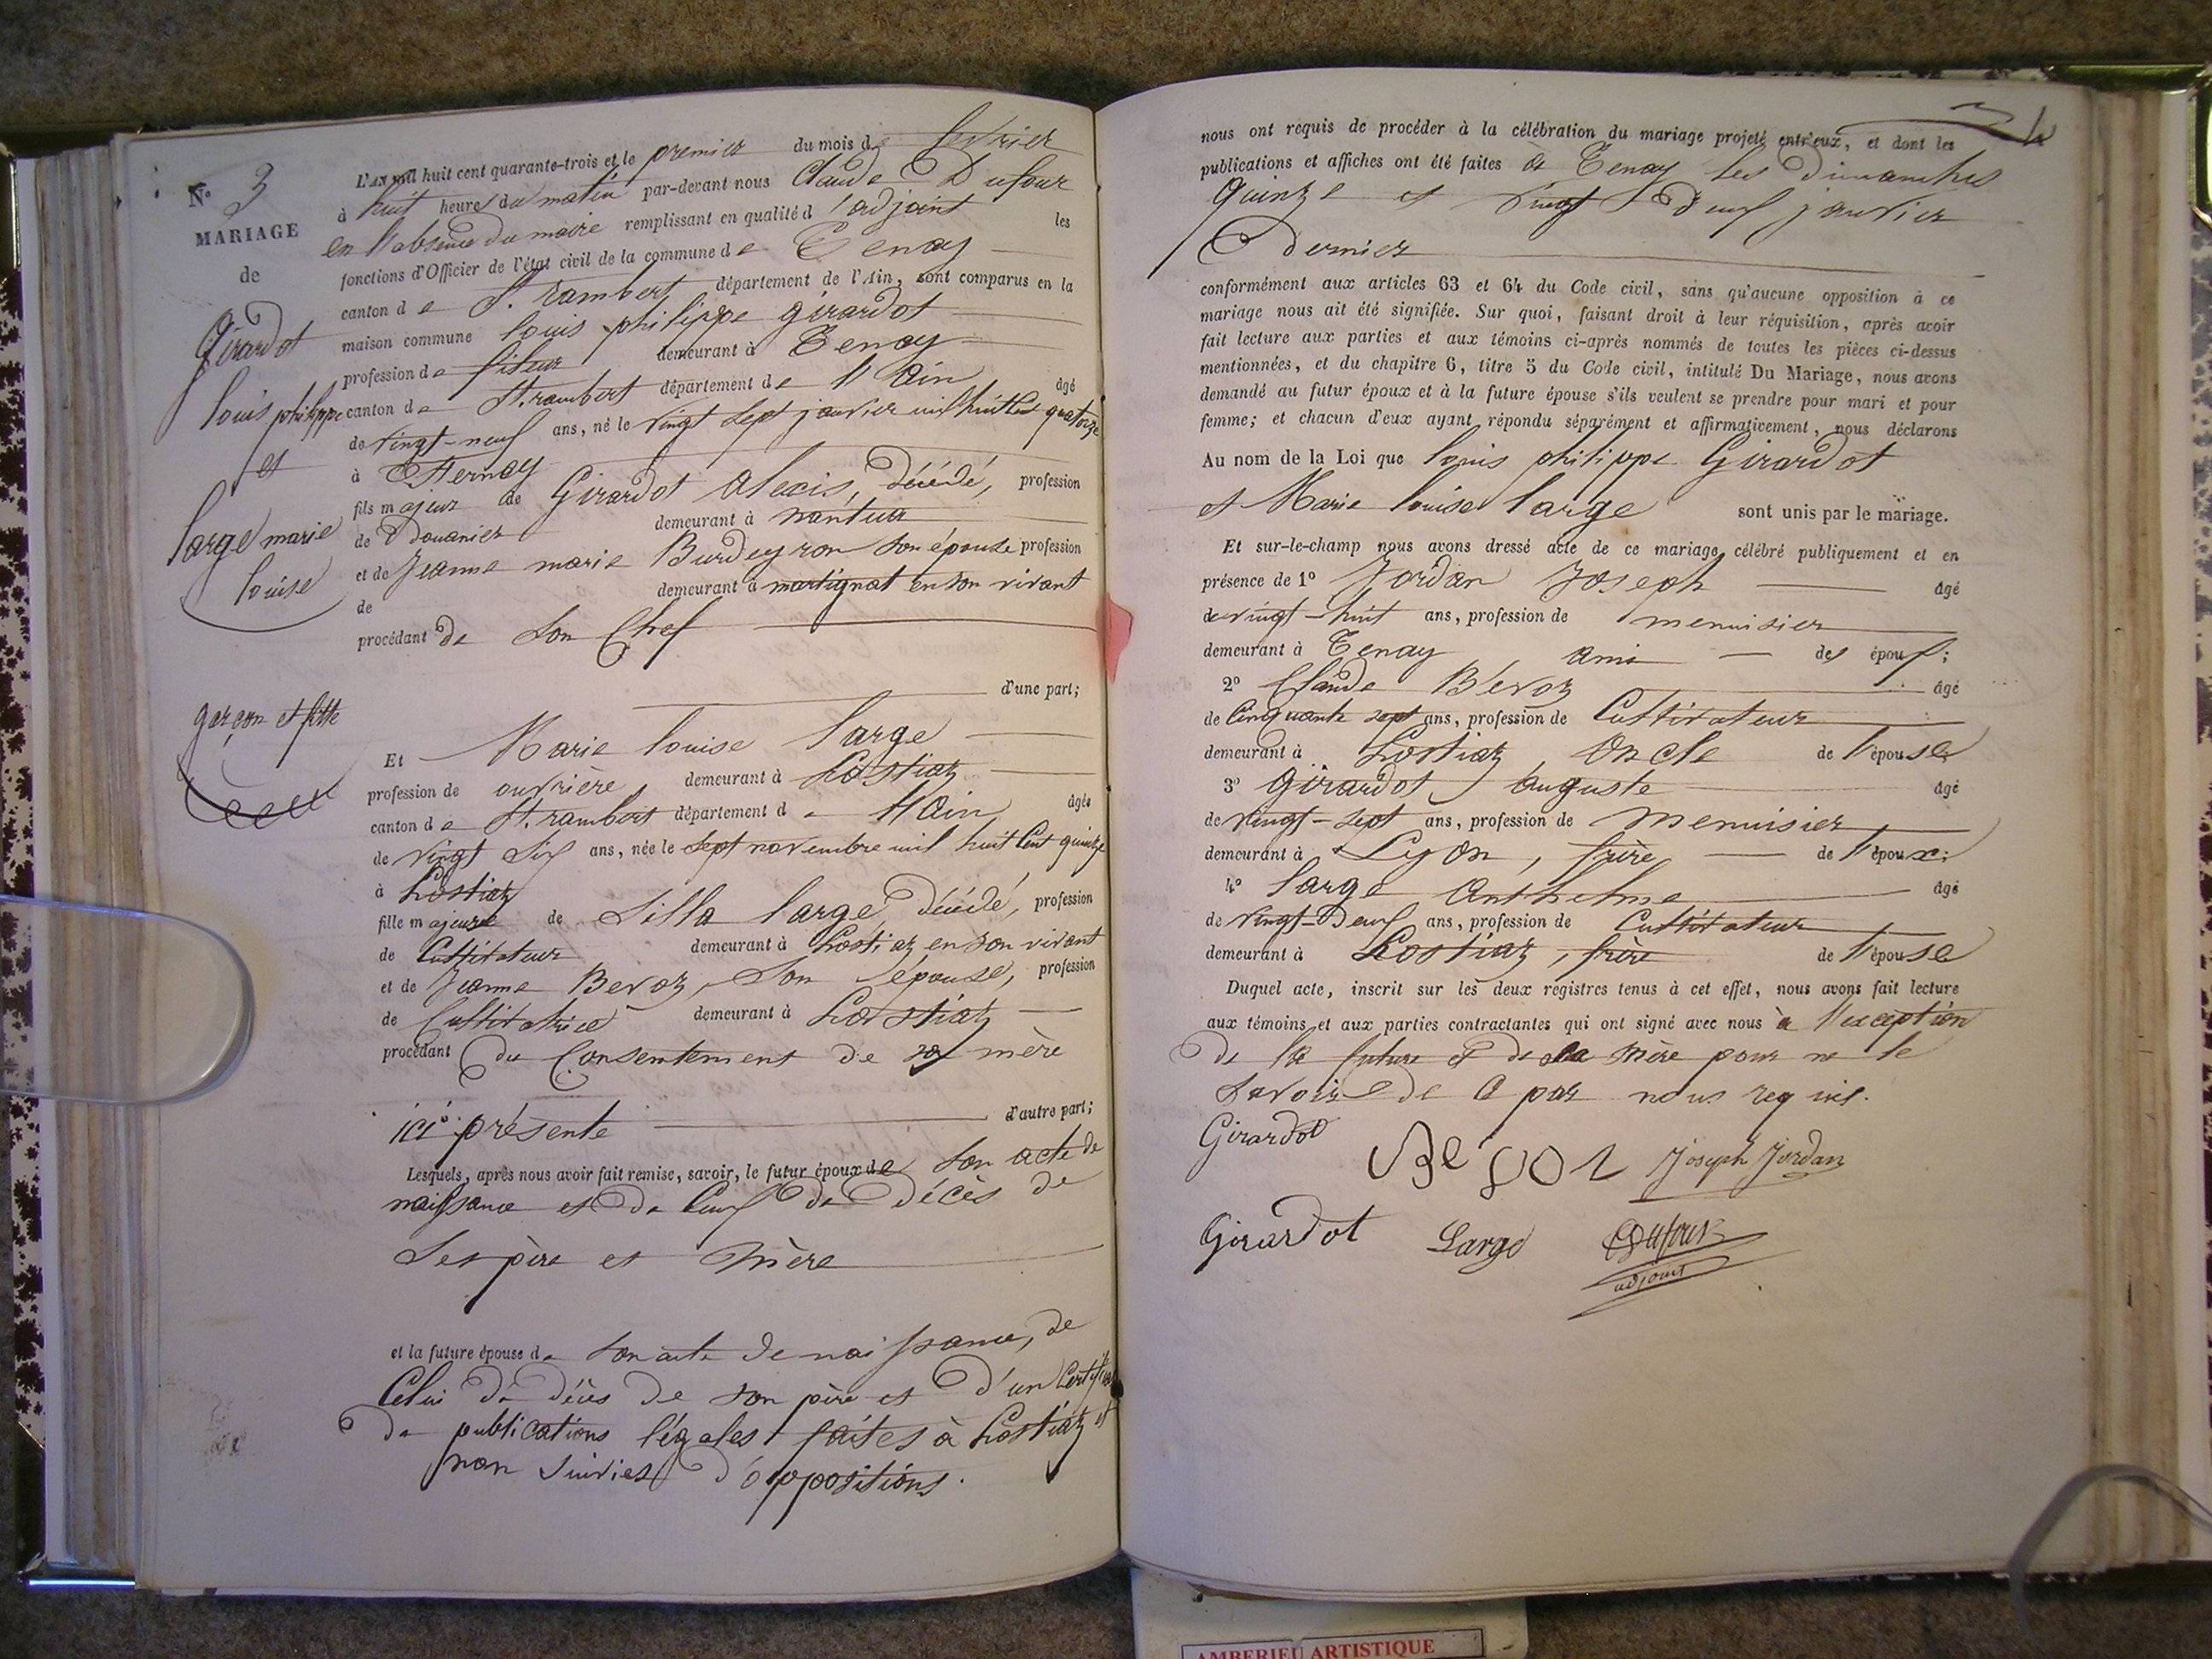 N° 3
MARIAGE
de
Girardot
louis philippe
et
large marie
louise
garçon et fille
L'AN mil huit cent quarante-trois et le premier du mois de fevrier
à huit heures du matin par-devant nous Claude Dufour
en l'absence du maire remplissant en qualité d'adjoint les
fonctions d'Officier de l'état civil de la commune de Tenay
canton de St. rambert département de l'Ain, sont comparus en la
maison commune louis philippe girardot
profession de fileur demeurant à Tenay
canton de St. rambert département de l'Ain âgé
de vingt-neuf ans, né le vingt sept janvier mil huit cent quatorze
à
fils majeur de Girardot Alexis, décédé, profession
de Douanier demeurant à nantua
et de Jeanne marie Burdeyron son épouse profession
de demeurant à martignat en son vivant
procédant de Son Chef
d'une part;
Et Marie louise large
profession de ouvrière demeurant à hostiaz
canton de St. rambert département de l'Ain âgée
de vingt Six ans, née le sept novembre mil huit cent quinze
à hostiaz
fille majeure de Silla large, décédé, profession
de Cultivateur demeurant à hostiaz en son vivant
et de Jeanne Bevoz, Son épouse, profession
de Cultivatrice demeurant à hostiaz
procédant du Consentement de sa mère
ici présente d'autre part;
Lesquels, après nous avoir fait remise, savoir, le futur époux de Son acte de
naissance et de Ceux de décès de
Ses père et mère
et la future épouse de Son acte de naissance, de
Celui de décès de son père et d'un Certificat
de publications légales faites à hostiaz et
non suivies d'oppositions.
nous ont requis de procéder à la célébration du mariage projeté entr'eux, et dont les
publications et affiches ont été faites à Tenay les Dimanches
quinze et vingt Deux janvier
dernier
conformément aux articles 63 et 64 du Code civil, sans qu'aucune opposition à ce
mariage nous ait été signifiée. Sur quoi, faisant droit à leur réquisition, après avoir
fait lecture aux parties et aux témoins ci-après nommés de toutes les pièces ci-dessus
mentionnées, et du chapitre 6, titre 5 du Code civil, intitulé Du Mariage, nous avons
demandé au futur époux et à la future épouse s'ils veulent se prendre pour mari et pour
femme; et chacun d'eux ayant répondu séparément et affirmativement, nous déclarons
Au nom de la Loi que louis philippe Girardot
et Marie louise large sont unis par le mariage.
Et sur-le-champ nous avons dressé acte de ce mariage célébré publiquement et en
présence de 1° Jordan Joseph âgé
de vingt-huit ans, profession de menuisier
demeurant à Tenay ami des époux;
2° Claude Bevoz âgé
de Cinquante sept ans, profession de Cultivateur
demeurant à hostiaz, Oncle de l'épouse
3° girardot auguste âgé
de vingt-sept ans, profession de menuisier
demeurant à Lyon, frère de l'époux;
4° large Anthelme âgé
de vingt-Deux ans, profession de Cultivateur
demeurant à hostiaz, frère de l'épouse
Duquel acte, inscrit sur les deux registres tenus à cet effet, nous avons fait lecture
aux témoins et aux parties contractantes qui ont signé avec nous à l'exception
de la future et de sa mère pour ne le
Savoir de ce par nous requis.
Girardot
Bevoz Joseph Jordan
Girardot Large Dufour
adjoint
AMBERIEU ARTISTIQUE